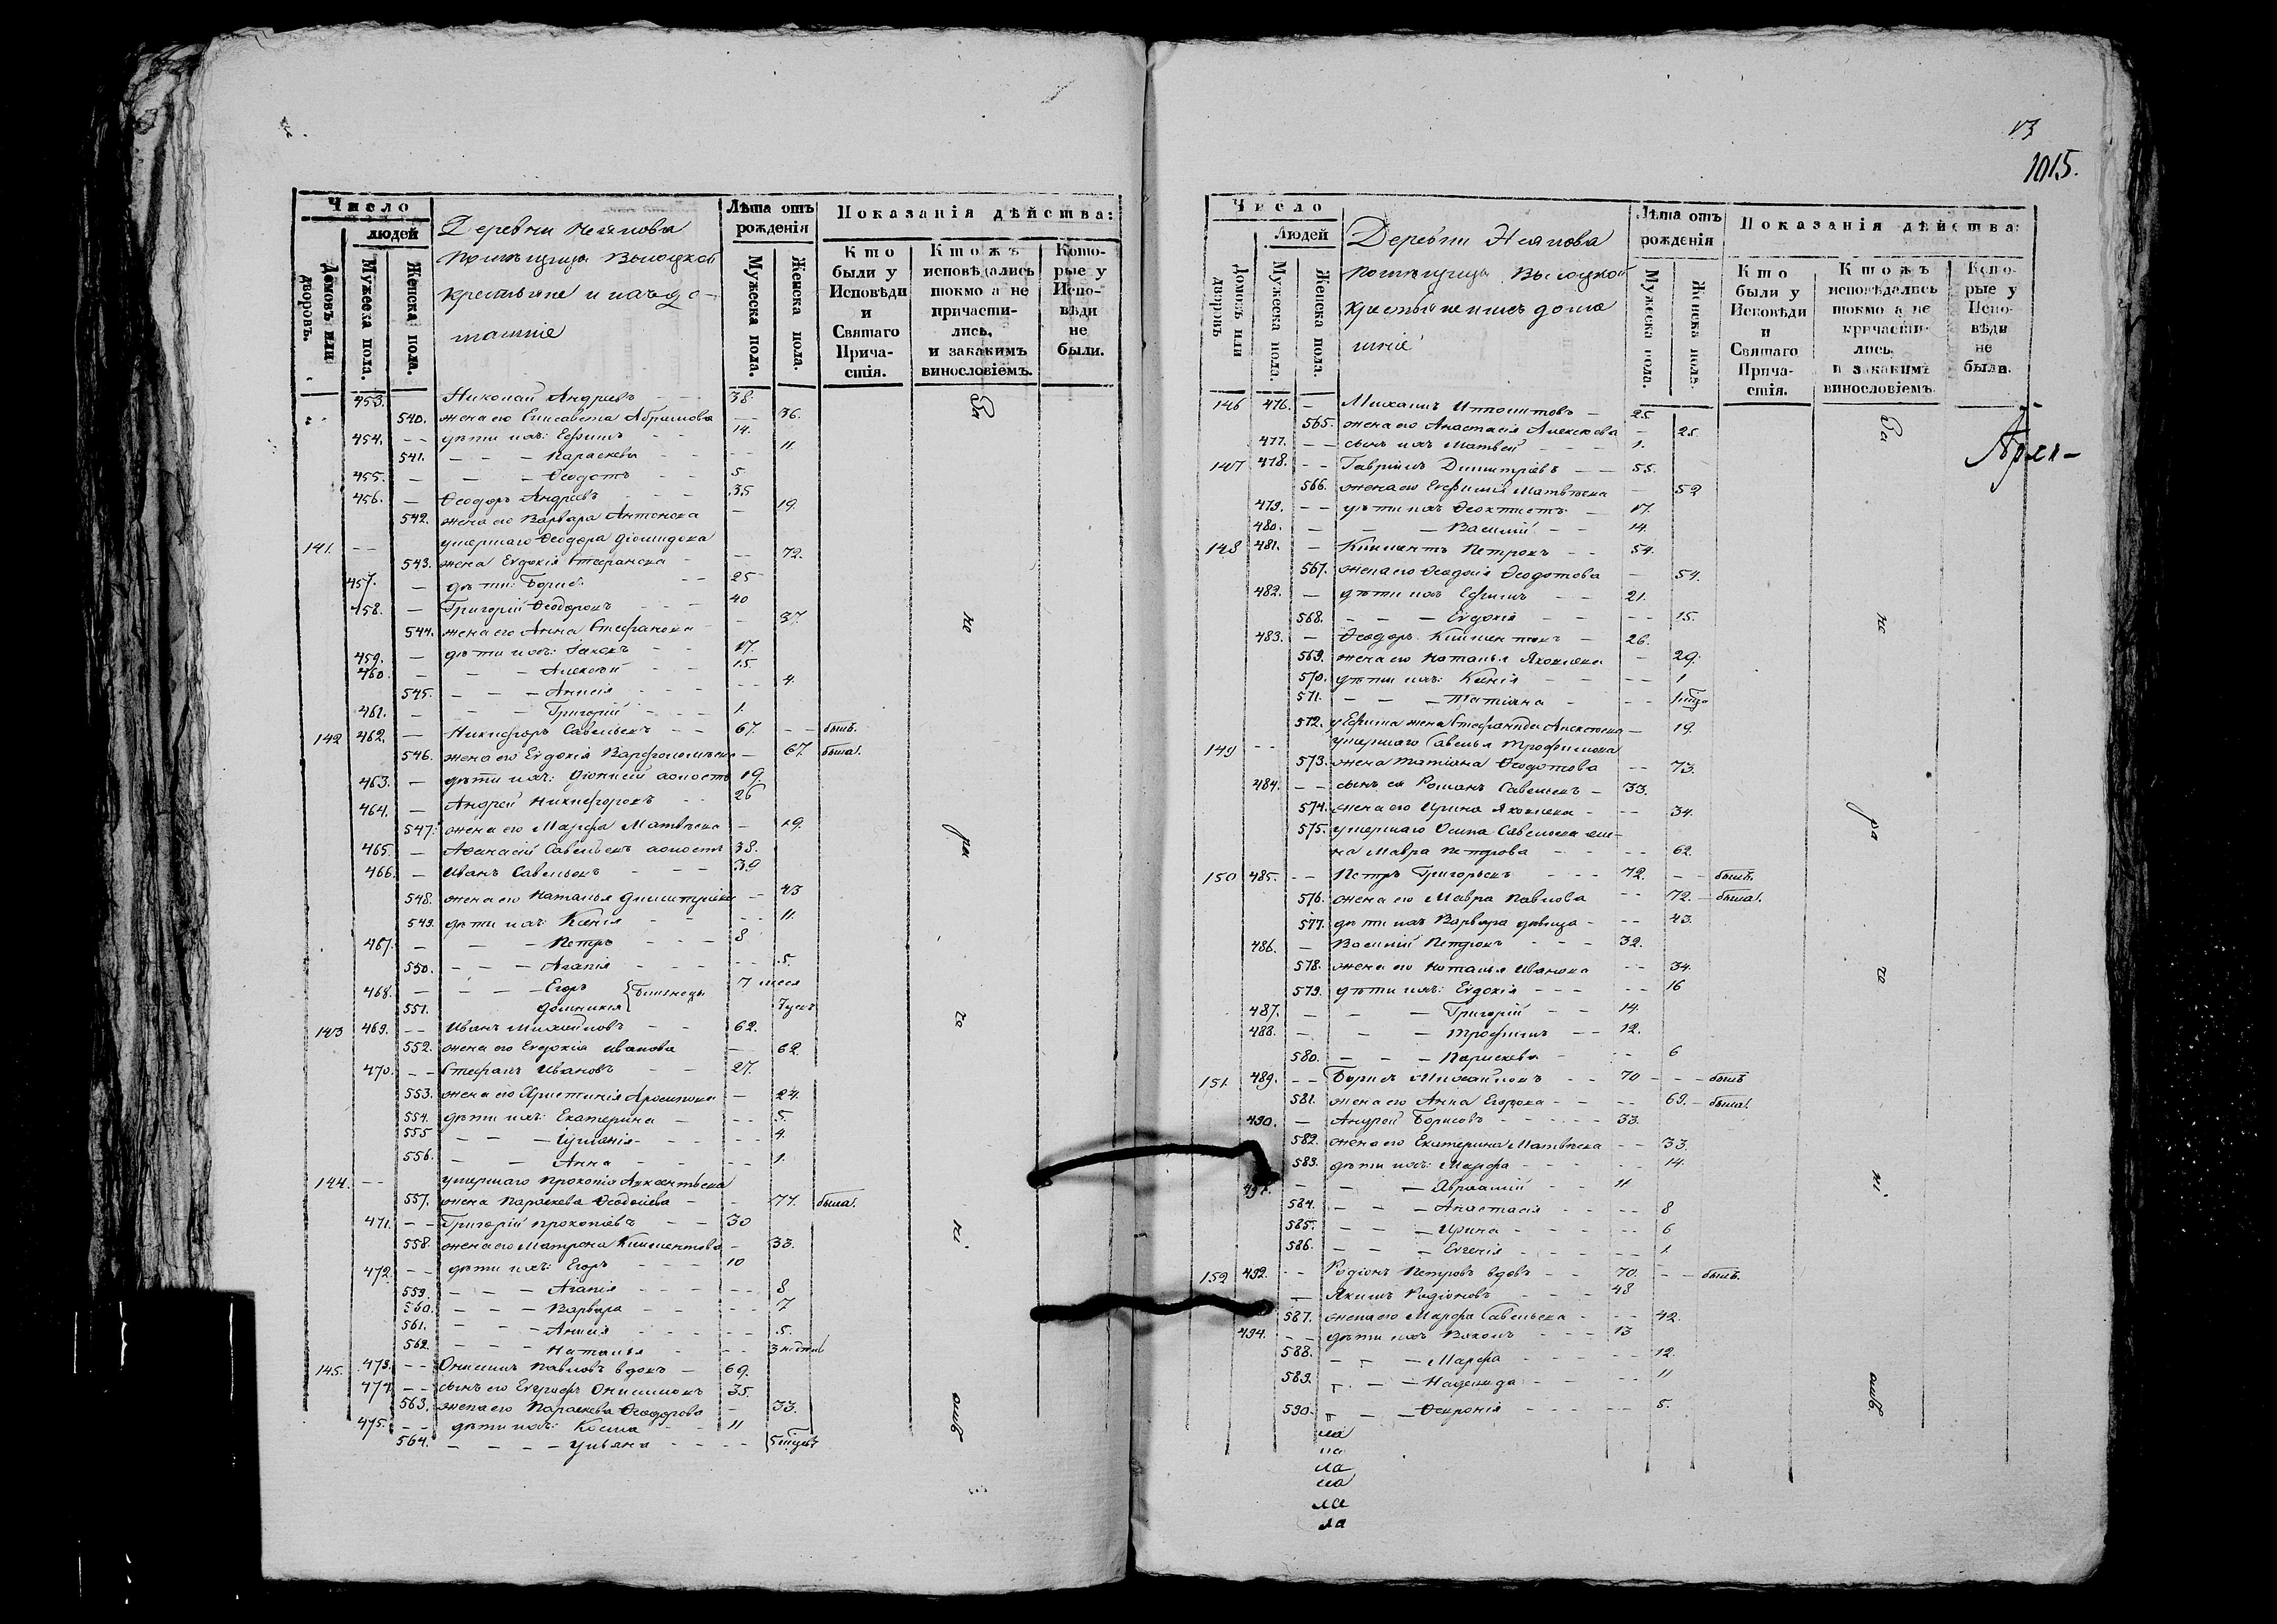 Число
людей
Домовъ или дворовъ.
Мужеска пола.
Женска пола.
Деревни Неянова
помѣщицы Высоцкой
крестьяне и ихъ до-
машніе
Лѣта отъ рожденія
Мужеска пола.
Женска пола.
Показанія дѣйства:
Кто были у Исповѣди и Святаго Прича- стія.
Ктожъ исповѣдались токмо а не причасти- лись, и закакимъ винословіемъ.
Кото- рые у Испо- вѣди не были.
453. Николай Андреевъ - - 38.
540. жена его Елисавета Абрамова - 36.
454. - - дѣти ихъ: Ефимъ - - 14.
541. - - - Параскева - - 11.
455. - - - Ѳеодотъ - - 5.
456. - Ѳеодоръ Андреевъ - - 35
542. жена его Варвара Антонова - 19.
141. - - умершаго Ѳеодора
543. жена Евдокія Стефанова - - 72.
457. - дѣти: Борисъ - - 25
458. - Григорій Ѳеодоровъ - - 40
544. жена его Анна Стефанова - 37.
459. - дѣти ихъ: Іаковъ - - 17.
460. - - - Алексѣй - - 15
545. - - - Анисія - - 4.
461. - - - Григорій - - 1.
142 462. - Никифоръ Савельевъ - - 67. - - былъ.
546. жена его Евдокія Варфоломѣева - 67. была.
463. - дѣти ихъ: Діонисій холостъ 19.
464. - Андрей Никифоровъ - - 26
547. жена его Марфа Матвѣева - 19.
465. - Аѳанасій Савельевъ холостъ 38.
466. - Иванъ Савельевъ - - - 39
548. жена его Наталья Димитріева - 43
549. дѣти ихъ: Ксенія - - 11.
467. - - - Петръ - - 8
550. - - - Агапія - - 5.
468. - - - Егоръ {близнецы 7 мѣся
551. Домникія{
143 469. - - Иванъ Михайловъ - - 62.
552. жена его Евдокія Иванова - 62.
470. - - Стефанъ Ивановъ - - 27.
553. жена его Христинія - 24.
554. дѣти ихъ: Екатерина - - 5.
555 - - - Іуліанія - - 4.
556. - - Анна - - 1.
144. - - умершаго Прокопія
557. жена Параскева Ѳеодосіева - 77. была.
471. - - Григорій Прокопіевъ - - 30
558. жена его Матрона Климентова - 33.
472. - - дѣти ихъ: Егоръ - - 10
559. - - - Агапія - - 8
560. - - - Варвара - - 7
561. - - - Анисія - - 5.
562. - - - Наталья - - 3
145. 473. - - Онисимъ Павловъ вдовъ - 69.
474. - - сынъ его Евграфъ Онисимовъ 35.
563. жена его Параскева Ѳеодорова - 33.
475. - - дѣти ихъ: Косма - - 11
564. - - - Ульяна - - 5
За
не
ра
че
ні
емъ
13
1015.
Число
Людей
Домовъ или дворовъ
Мужеска пола.
Женска пола.
Деревни Неянова
помѣщицы Высоцкой
крестьяне и ихъ дома
шніе
Лѣта отъ рожденія
Мужеска пола.
Женска пола.
Показанія дѣйства:
Кто были у Исповѣди и Святаго Прича- стія.
Ктожъ исповѣдались токмо а не причасти- лись, и закакимъ винословіемъ.
Кото- рые у Испо- вѣди не были.
146 476. - Михаилъ Ипполитовъ - 25.
565. жена его Анастасія Алексѣева - 25.
477. - - сынъ ихъ Матвей - - - 1.
147 478. - - Гавріилъ Димитріевъ - - 55.
566. жена его Евфимія Матвѣева - 52
479. - - дѣти ихъ Ѳеоктистъ - 17.
480. - - - Василій - - 14.
148 481. - Климентъ Петровъ - - 54.
567. жена его Ѳеодосія Ѳеодотова - 54.
482. - дѣти ихъ Ефимъ - - 21.
568. - - - Евдокія - - 15.
483. - Ѳеодоръ Климентовъ - 26.
569. жена его Наталья Яковлева - 29.
570. дѣти ихъ: Ксенія - - 1
571. - - - Татіана - -
572. у Ефима жена Стефанида Алексѣева - 19.
149 - - умершаго Савелья Трофимова
573. жена Татіана Ѳеодотова - - 73.
484. - - сынъ ея Романъ Савельевъ - 33.
574. жена его Ирина Яковлева - - 34.
575. умершаго Осипа Савельева же-
на Мавра Петрова - - 62.
150 485. - - Петръ Григорьевъ - - - 72. - - былъ.
576. жена его Мавра Павлова - - 72. - была.
577. дѣти ихъ Варвара дѣвица - - - 43.
486. - Василій Петровъ - - - 32.
578. жена его Наталья Иванова - - 34.
579. дѣти ихъ: Евдокія - - - - 16
487. - - - Григорій - - 14.
488. - - - Трофимъ - - 12.
580. - - - Параскева - - - 6
151. 489. - - Борисъ Михайловъ - - 70 - - - былъ
581. жена его Анна Егорова - - - - 69. - была.
490. - Андрей Борисовъ - - - - 33.
582. жена его Екатерина Матвѣева - - 33.
583. дѣти ихъ: Марфа - - - - 14.
491. - - - Авраамій - - 11
584. - - - Анастасія - - - 8
585. - - - Ирина - - - 6
586. - - - Евгенія - - - 1.
152 492. - - Родіонъ Петровъ вдовъ - - 70. - - былъ.
- Якимъ Родіоновъ - - - 48
587. жена его Марфа Савельева - - - 42.
494. - - дѣти ихъ - - - 13
588. - - - Марфа - - - - 12.
589. - - - Надежда - - - 11
590. - - - Ѳевронія - - - - 5.
ла
ла
ла
ла
ла
ла
За
не
ра
че
ні
емъ.